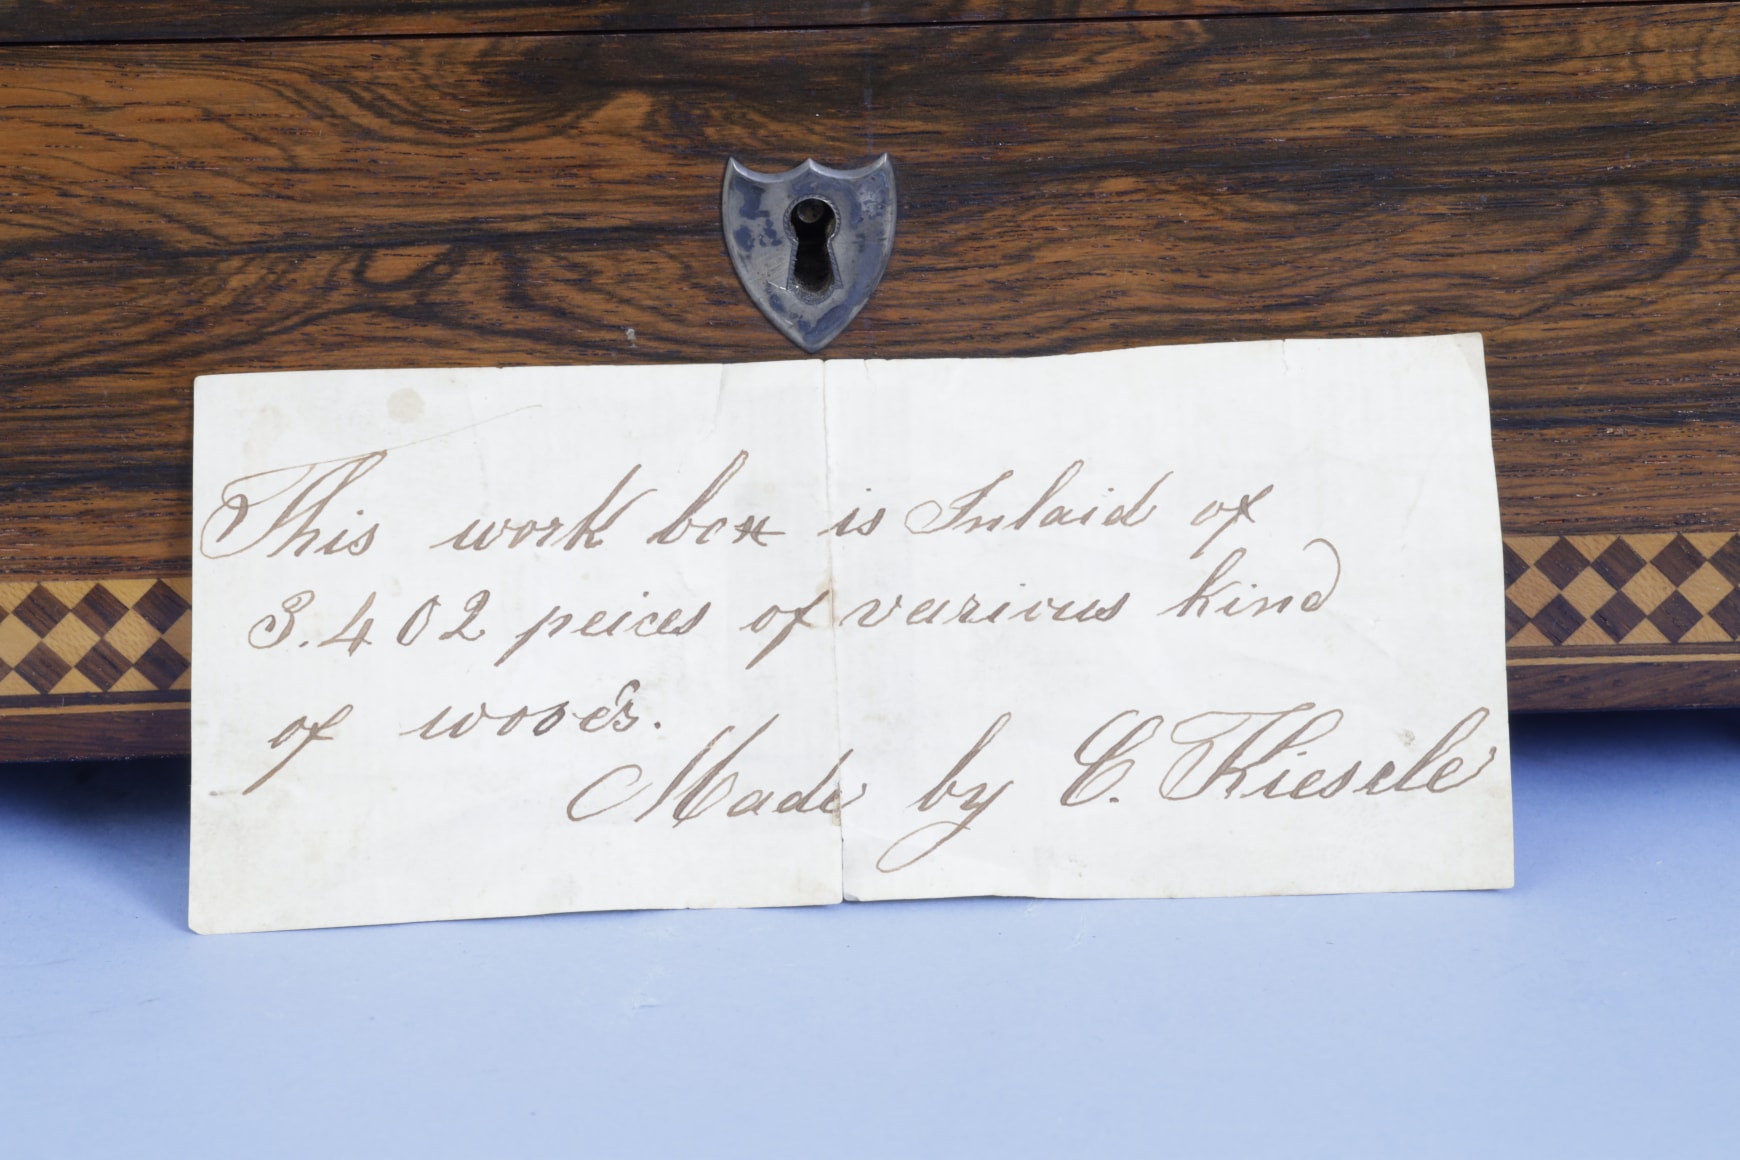 This work box is Inlaid of
3.402 peices of various kind
of woods.
Made by C. Kiesele